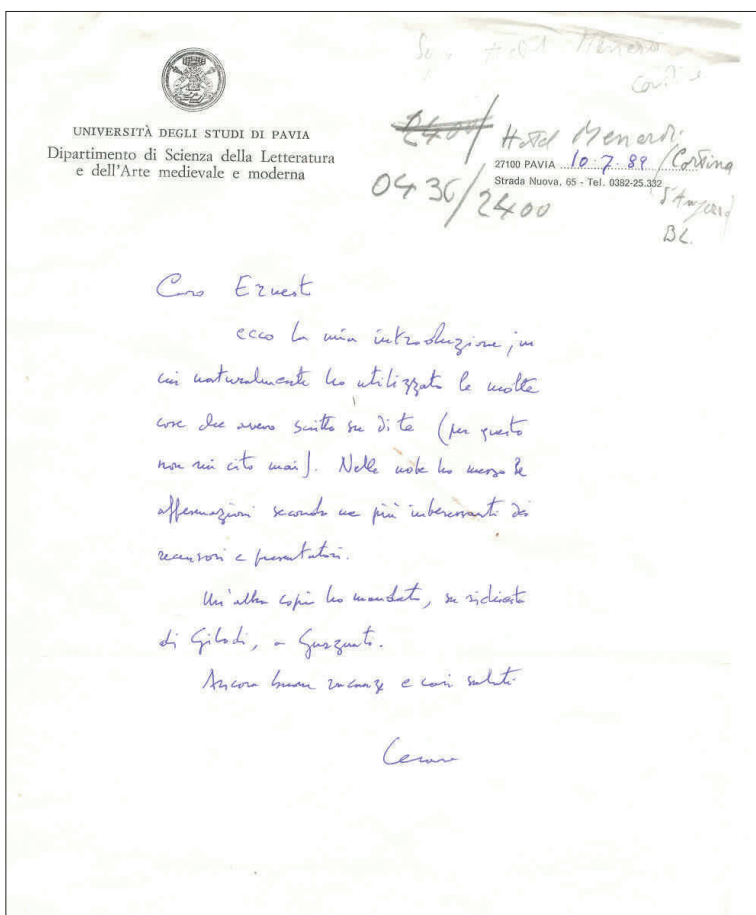 Hotel Menardi
Cortina
UNIVERSITÀ DEGLI STUDI DI PAVIA
Dipartimento di Scienza della Letteratura
e dell'Arte medievale e moderna
2400
Hotel Menardi
27100 PAVIA 10·7·89 /Cortina
Strada Nuova, 65 - Tel. 0382-25.332
0436/2400
d'Ampezzo
BL.
Caro Ernesto
ecco la mia introduzione, in
cui naturalmente ho utilizzato le molte
cose che avevo scritto su di te (per questo
non mi cito mai). Nelle note ho messo le
affermazioni secondo me più interessanti dei
recensori e presentatori.
Un'altra copia ho mandato, su richiesta
di Gilodi, a
Ancora buone vacanze e cari saluti
Cesare